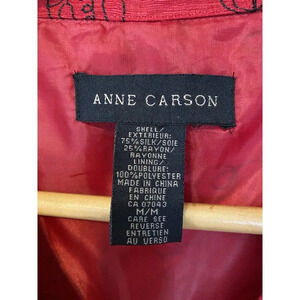 ANNE CARSON
SHELL/
EXTÉRIEUR:
75%SILK/SOIE
25%RAYON/
RAYONNE
LINING/
DOUBLURE:
100%POLYESTER
MADE IN CHINA
FABRIQUE
EN CHINE
CA 07043
M/M
CARE SEE
REVERSE
ENTRETIEN
AU VERSO